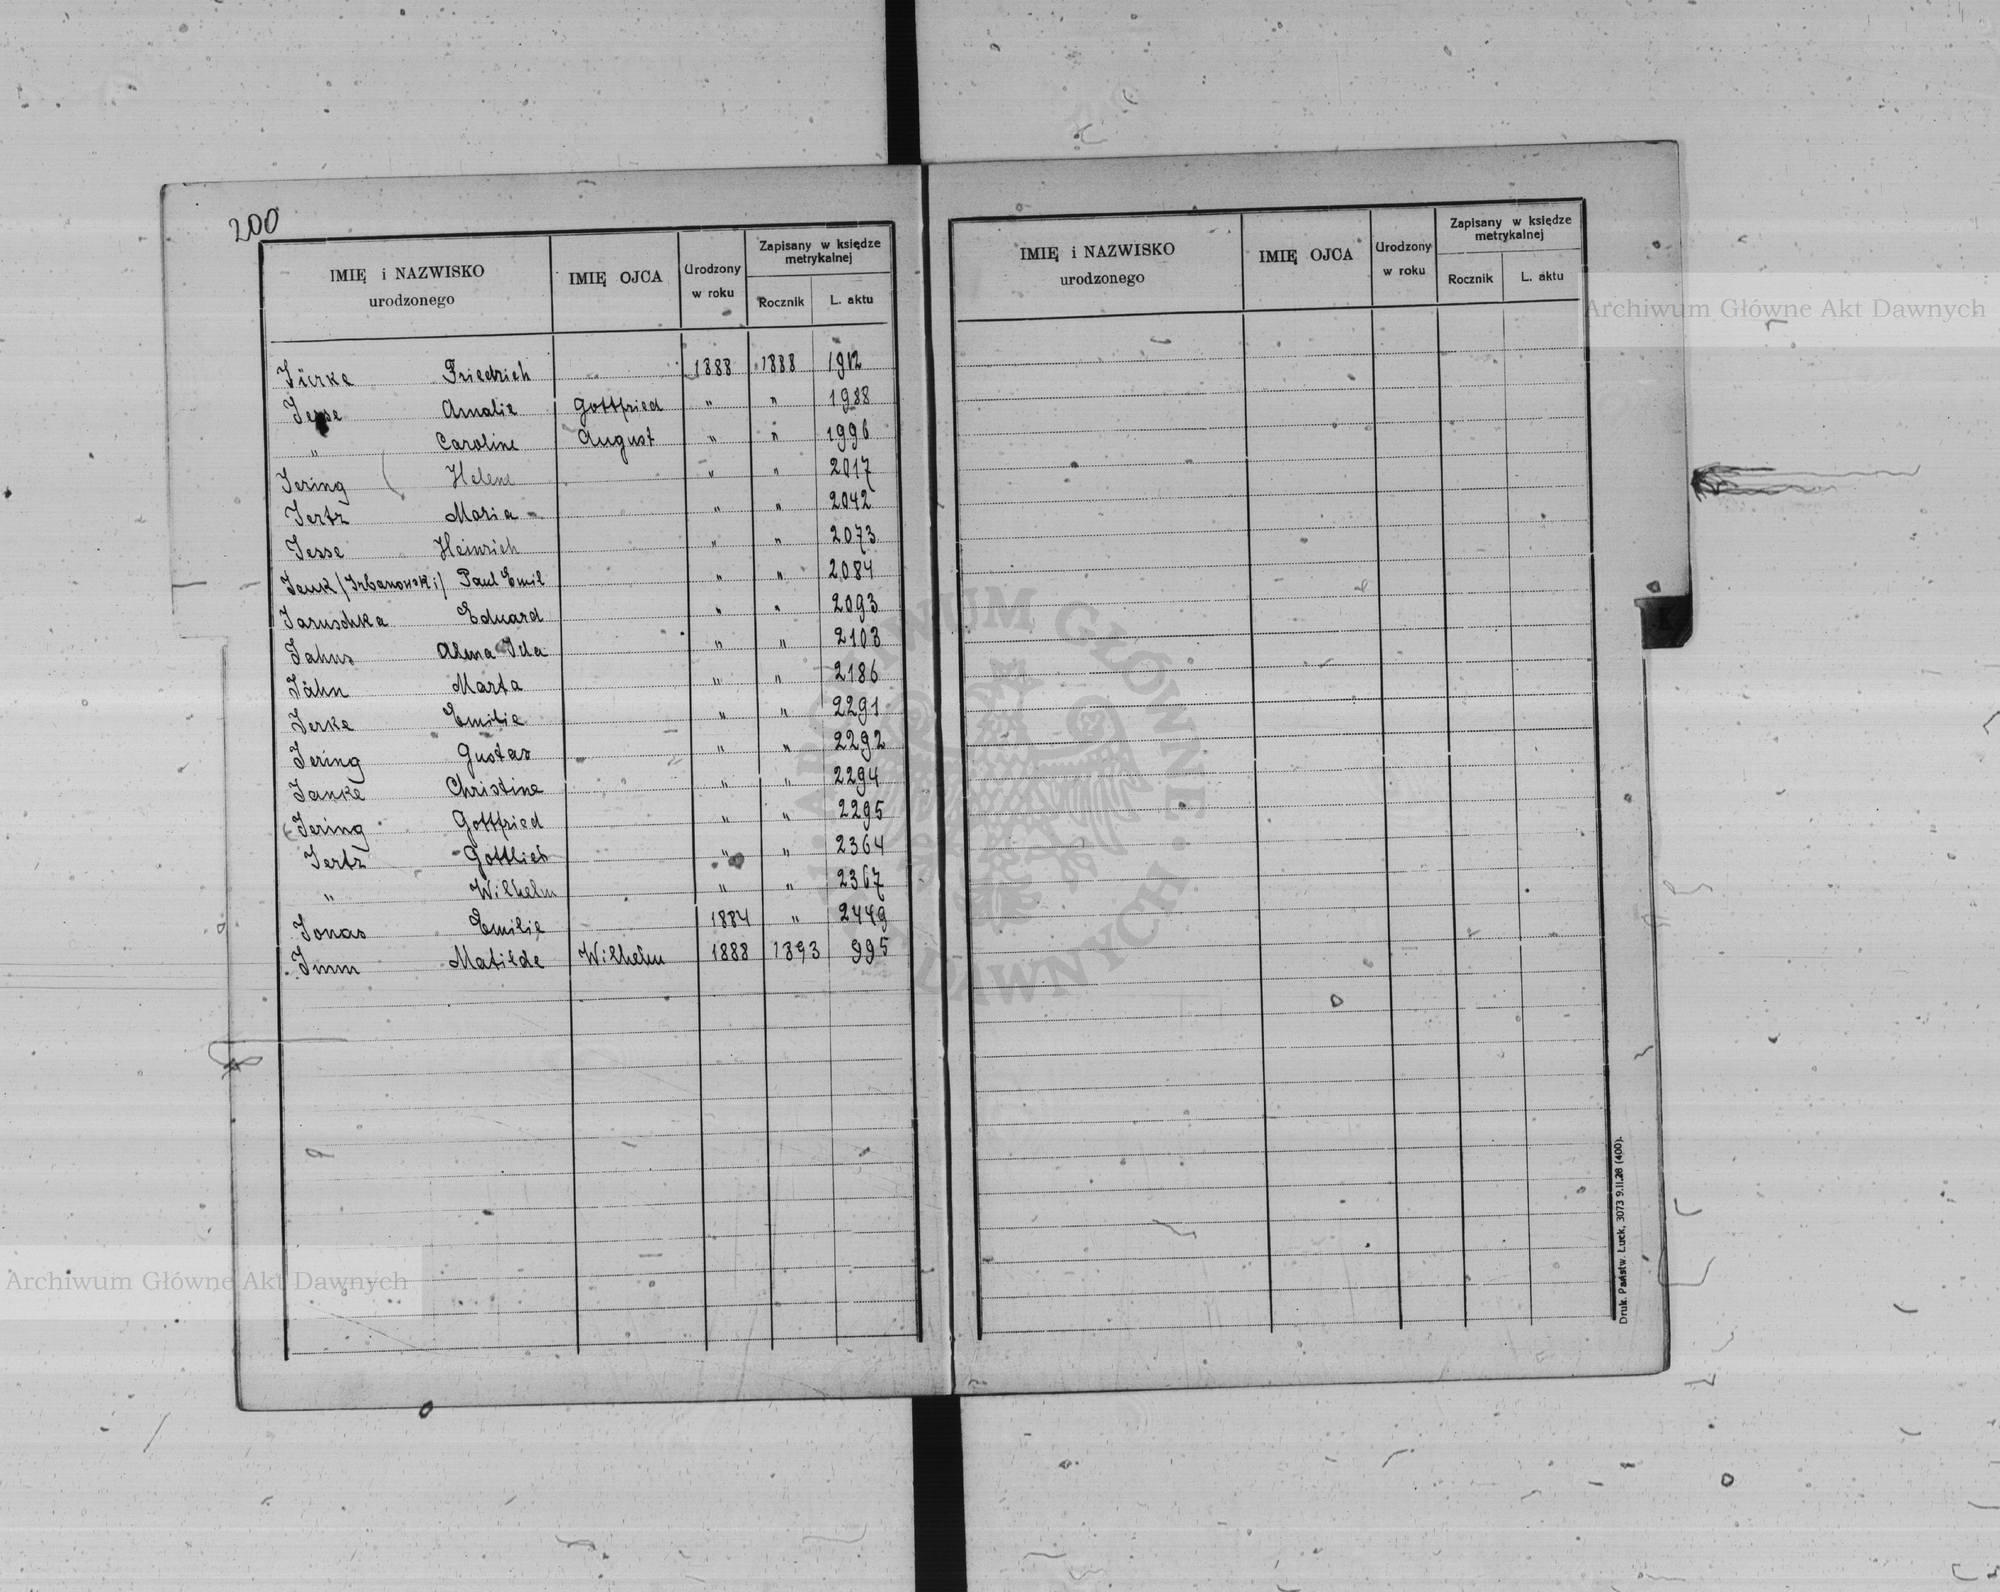 200
IMIĘ i NAZWISKO urodzonego | IMIĘ OJCA | Urodzony w roku | Zapisany w księdze metrykalnej | Rocznik | L. aktu
Jürke Friedrich 1888 1888 1912
Jesse Amalie Gottfried " " 1988
" Caroline August " " 1996
Jering Helene " " 2017
Jertz Maria " " 2042
Jesse Heinrich " " 2073
Jeuk /Irbanowski/ Paul Emil " " 2084
Jaruschka Eduard " " 2093
Jahns Alma Ida " " 2103
Jähn Marta " " 2186
Jerke Emilie " " 2291
Jering Gustav " " 2292
Janke Christine " " 2294
Jering Gottfried " " 2295
Jertz Gottlieb " " 2364
" Wilhelm " " 2367
Jonas Emilie 1884 " 2449
Imm Matilde Wilhelm 1888 1893 995
IMIĘ i NAZWISKO urodzonego | IMIĘ OJCA | Urodzony w roku | Zapisany w księdze metrykalnej | Rocznik | L. aktu
Druk. Państw. Łuck, 3073 9.II.28 (400).
Archiwum Główne Akt Dawnych
Archiwum Główne Akt Dawnych
ARCHIWUM GŁÓWNE AKT DAWNYCH